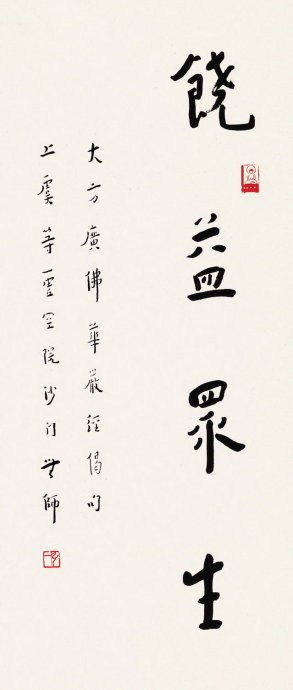 饒益眾生
大方廣佛華嚴經偈句
上虞等空院沙門無師